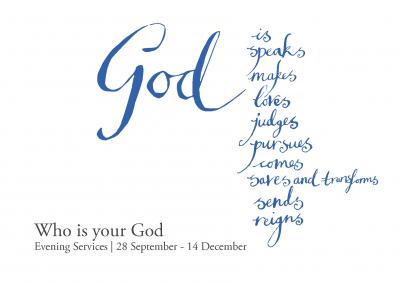 God
is
speaks
makes
loves
judges
pursues
comes
saves and transforms
sends
reigns
Who is your God
Evening Services | 28 September - 14 December